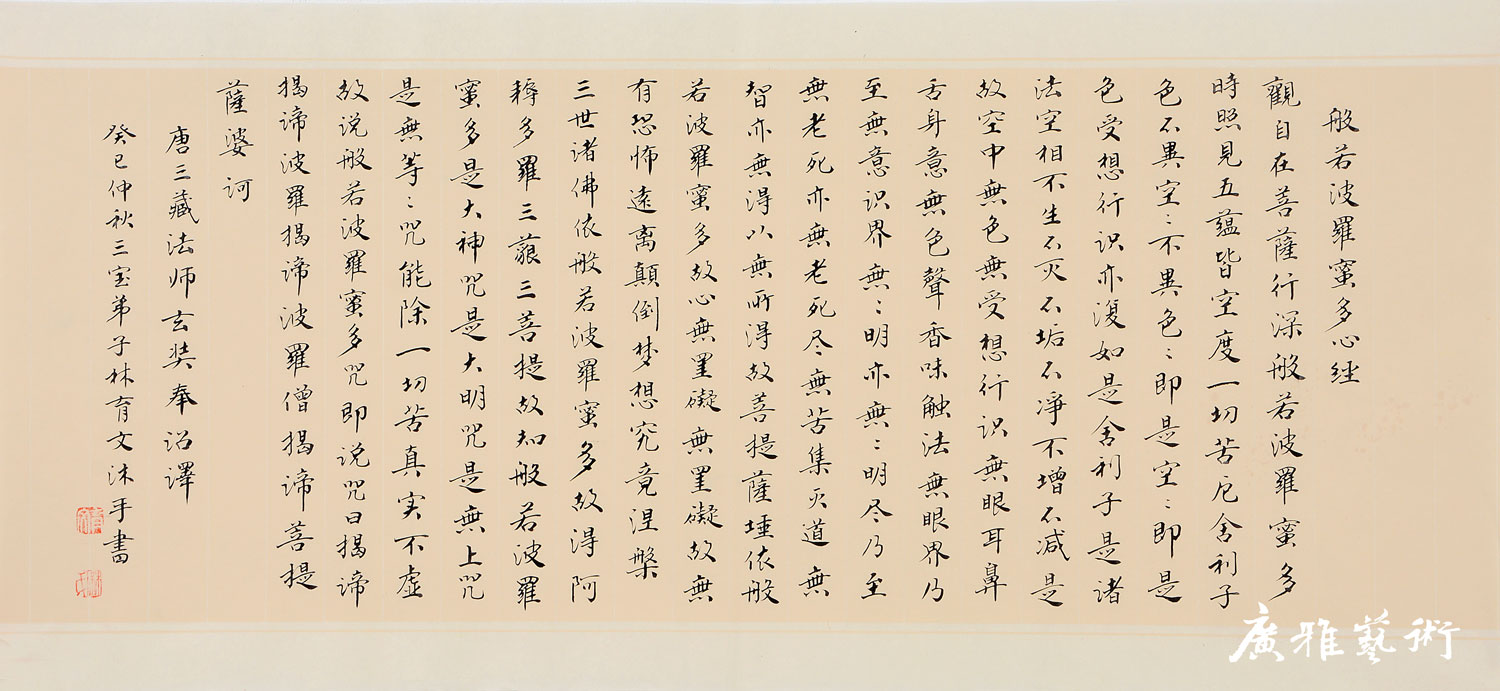 般若波羅蜜多心经
觀自在菩薩行深般若波羅蜜多
時照見五蕴皆空度一切苦厄舍利子
色不異空々不異色々即是空々即是
色受想行识亦復如是舍利子是诸
法空相不生不灭不垢不淨不增不减是
故空中無色無受想行识無眼耳鼻
舌身意無色聲香味触法無眼界乃
至無意识界無々明亦無々明尽乃至
無老死亦無老死尽無苦集灭道無
智亦無得以無所得故菩提薩埵依般
若波羅蜜多故心無罣礙無罣礙故無
有恐怖遠离顛倒梦想究竟涅槃
三世诸佛依般若波羅蜜多故得阿
耨多羅三藐三菩提故知般若波羅
蜜多是大神咒是大明咒是無上咒
是無等々咒能除一切苦真实不虚
故说般若波羅蜜多咒即说咒曰揭谛
揭谛波羅揭谛波羅僧揭谛菩提
薩婆诃
唐三藏法师玄奘奉诏譯
癸巳仲秋三宝弟子林育文沐手書
廣雅藝術